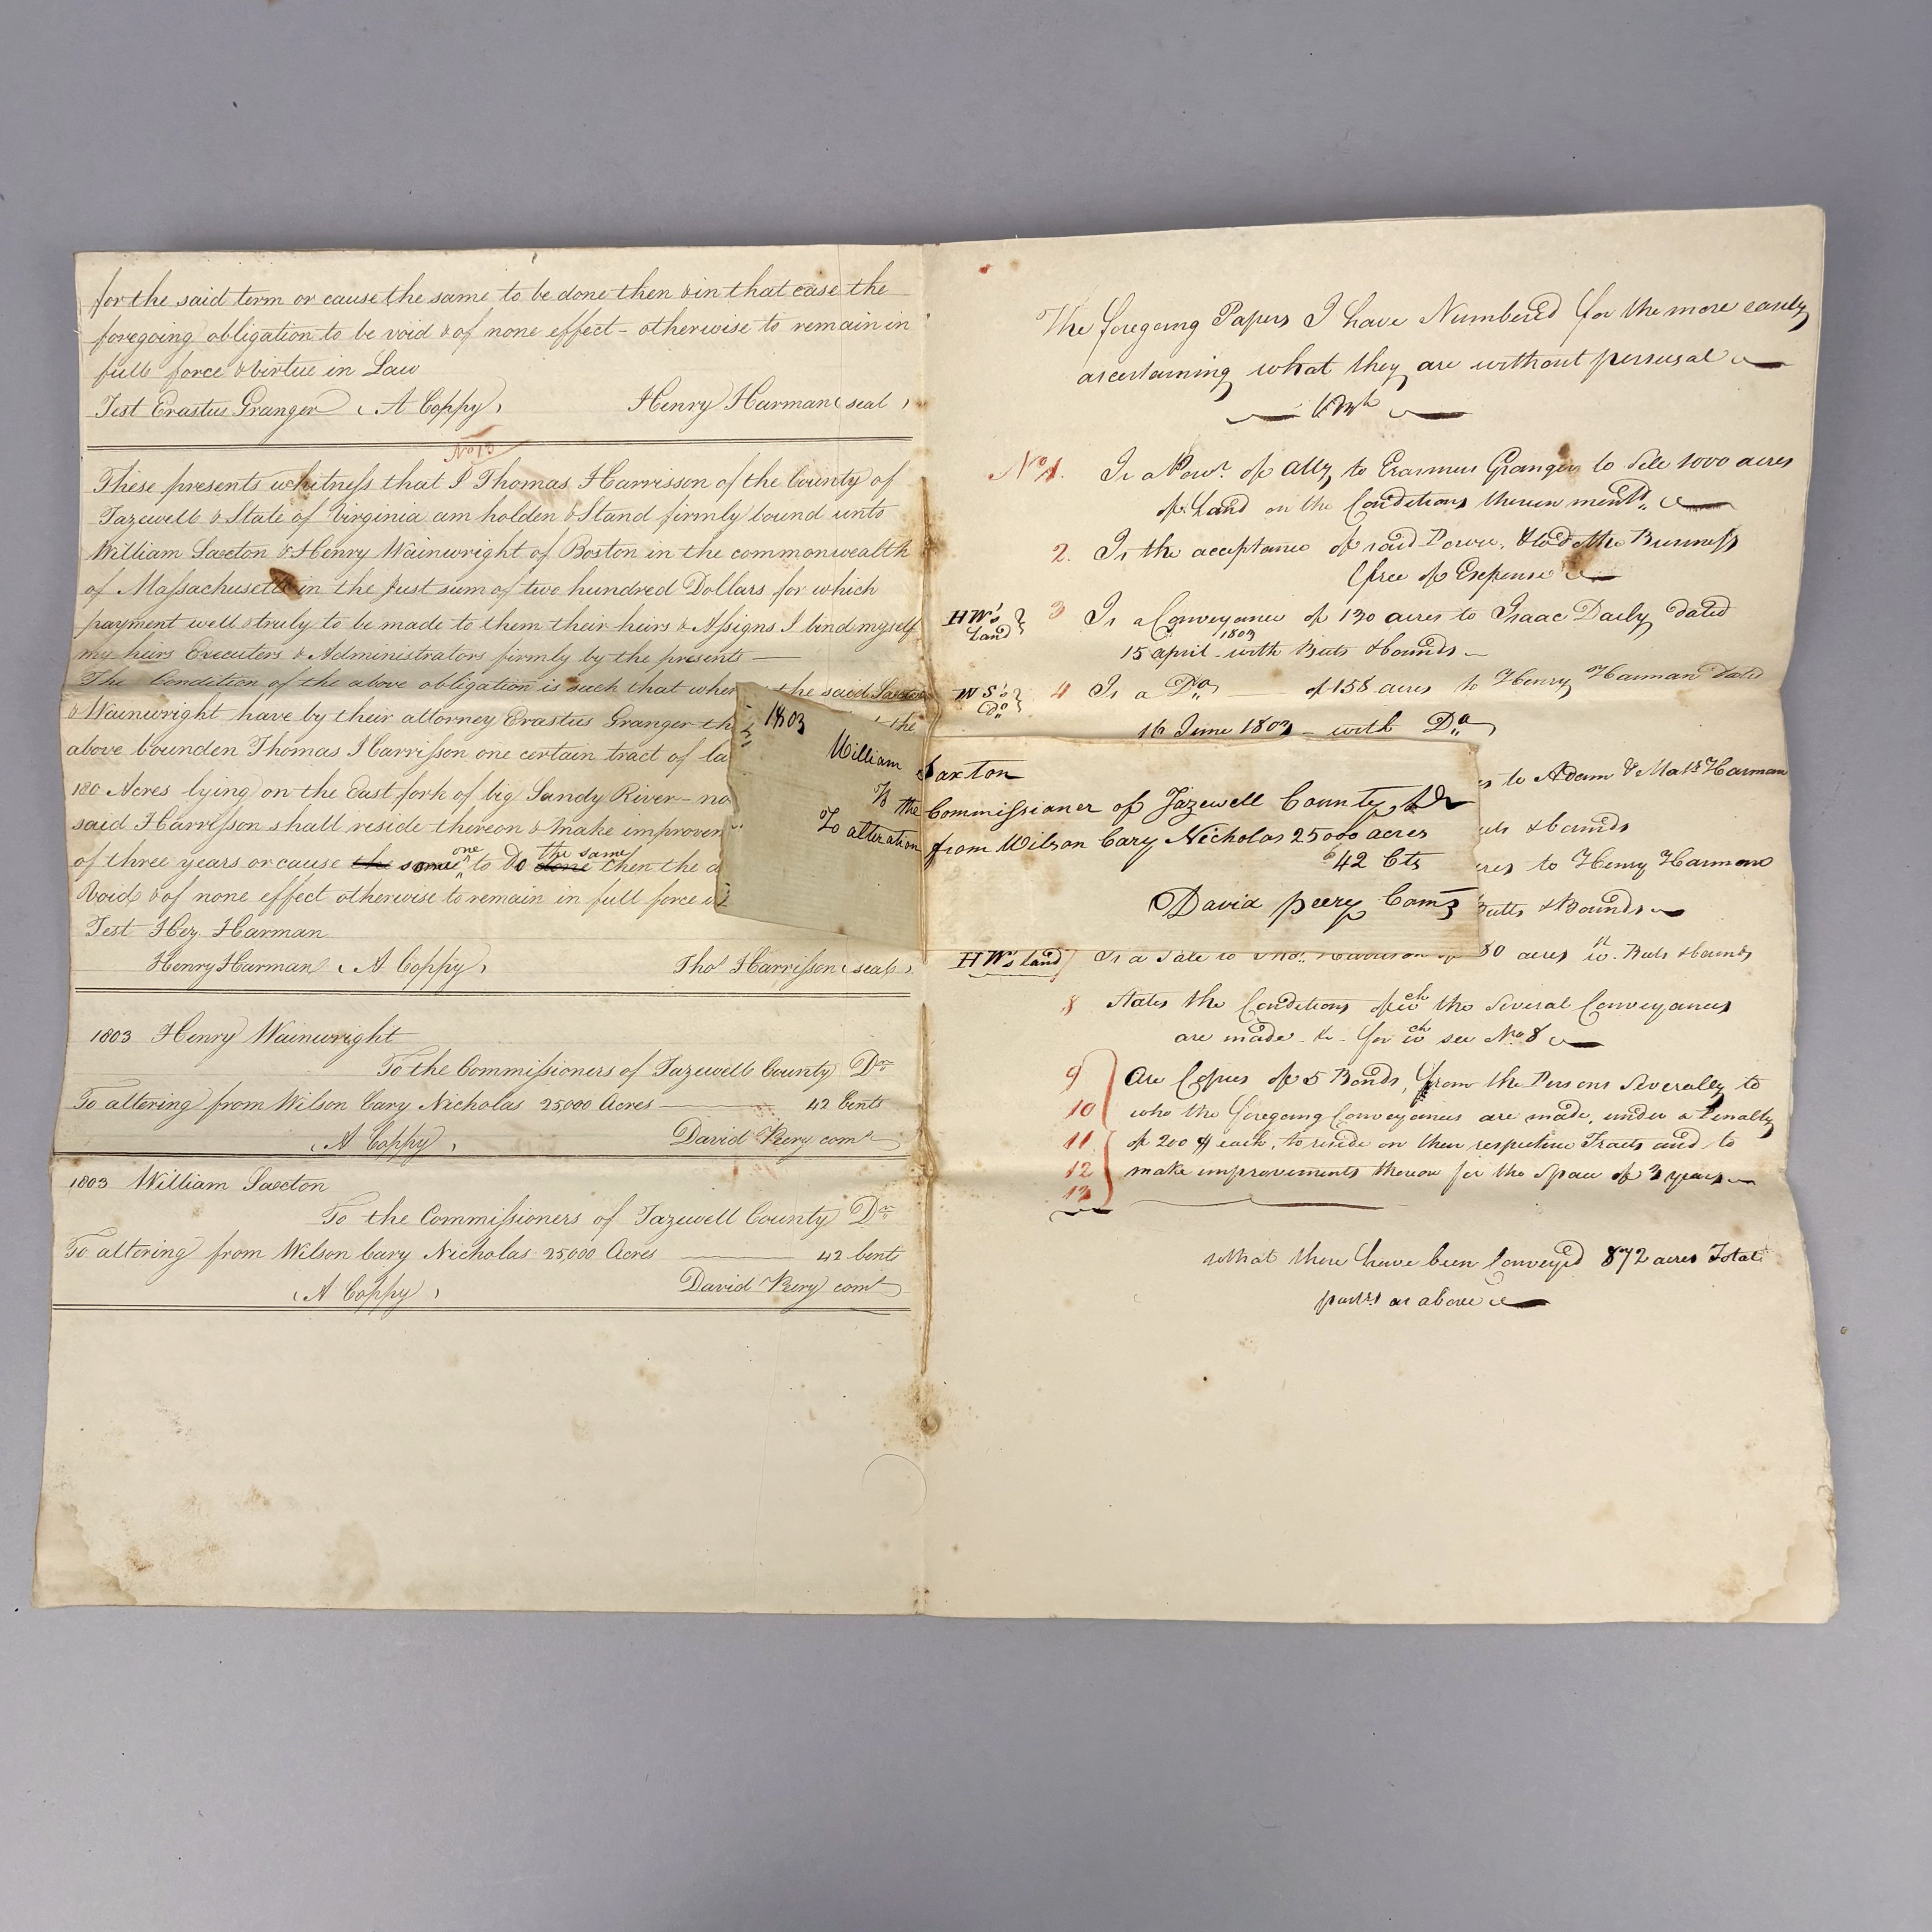 for the said term or cause the same to be done then & in that case the
foregoing obligation to be void & of none effect - otherwise to remain in
full force & virtue in Law
Test Erastus Granger (A Coppy) Henry Harman (seal)
No 13
These presents whitness that I Thomas Harrisson of the County of
Tazewell & State of Virginia am holden & Stand firmly bound unto
William Saxton & Henry Wainwright of Boston in the commonwealth
of Massachusetts in the Just sum of two hundred Dollars for which
payment well & truly to be made to them their heirs & Assigns I bind myself
my heirs Executers & Administrators firmly by the presents —
The Condition of the above obligation is such that wher the said Saxton
& Wainwright have by their attorney Erastus Granger th the
above bounden Thomas Harrisson one certain tract of la
180 Acres lying on the East fork of big Sandy River - no
said Harrisson shall reside thereon & make improvem
of three years or cause the some one to do done the same then the a
Void & of none effect otherwise to remain in full force
Test Hez Harman
Henry Harman (A Coppy) Tho Harrisson (seal)
1803 Henry Wainwright
To the Commissioners of Tazewell County Dr
To altering from Wilson Cary Nicholas 25,000 Acres — 42 Cents
(A Coppy) David Peery comr
1803 William Saxton
To the Commissioners of Tazewell County Dr
To altering from Wilson Cary Nicholas 25,000 Acres — 42 Cents
(A Coppy) David Peery comr
1803
William Saxton
To the Commissioner of Tazewell County Dr
To alteration from Wilson Cary Nicholas 25000 acres
42 Cts
David peery Com
The foregoing Papers I have Numbered for the more easily
ascertaining what they are without perusal
No 1. Is a Powr. of Atty to Erasmus Granger to Sele 1000 acres
of Land on the Conditions therein mentd.
2. Is the acceptance of said Power, & to do the Business
free of Expense
HW's Land } 3 Is a Conveyance of 130 acres to Isaac Daily dated
15 april 1803 with Buts & bounds
WS's Do } 4 Is a Do — of 158 acres to Henry Harman dated
16 June 1803 - with Do
s to Adam & Mats Harman
uts & bounds
cres to Henry Harman
Butts & Bounds
HW's land 7 Is a Sale to Thos. Harrison of 180 acres wt. Buts & bounds
8 States the Conditions of wch the Several Conveyances
are made - &c - for wch see No 8
9 Are Copies of 5 Bonds, from the Persons Severally to
10 who the foregoing Conveyances are made, under a Penalty
11 of 200 $ each, to reside on their respective Tracts and to
12 make improvements thereon for the Space of 3 years
13
What there have been Conveyed 872 acres Total
as above